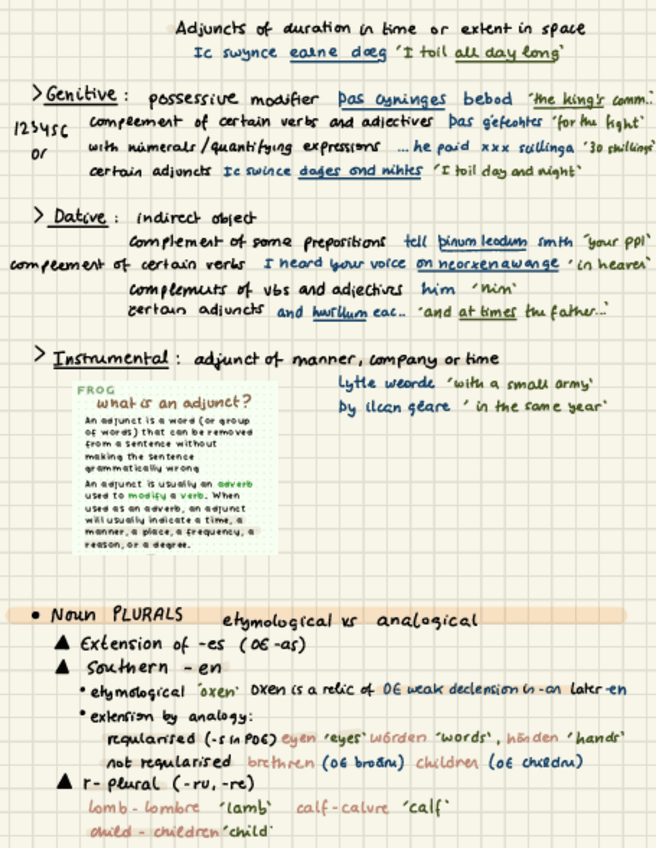 Adjuncts of duration in time or extent in space
Ic swynce ealne dæg 'I toil all day long'
> Genitive : possessive modifier þas cyninges bebod 'the king's comm..'
123456 compeement of certain verbs and adjectives þas gefeohtes 'for the fight'
or with numerals/quantifying expressions ...he paid xxx scillinga '30 shillings'
certain adjuncts Ic swince dages ond nihtes 'I toil day and night'
> Dative : indirect object
complement of some prepositions tell þinum leodum smth 'your ppl'
compeement of certain verbs I heard your voice on neorxenawange 'in heaven'
complements of vbs and adjectives him 'him'
certain adjuncts and eac.. 'and at times the father...'
> Instrumental : adjunct of manner, company or time
lytle weorde 'with a small army'
by ilcan geare 'in the same year'
FROG
what is an adjunct?
An adjunct is a word (or group
of words) that can be removed
from a sentence without
making the sentence
grammatically wrong
An adjunct is usually an adverb
used to modify a verb. When
used as an adverb, an adjunct
will usually indicate a time, a
manner, a place, a frequency, a
reason, or a degree.
• Noun PLURALS etymological vs analogical
▲ Extension of -es (OE -as)
▲ Southern -en
• etymological 'oxen' oxen is a relic of OE weak declension in -an later -en
• extension by analogy:
regularised (-s in PDE) eyen 'eyes' wórden 'words', hånden 'hands'
not regularised brethren (OE broðru) children (OE childru)
▲ r- plural (-ru, -re)
lomb - lombre 'lamb' calf - calvre 'calf'
child - children 'child'